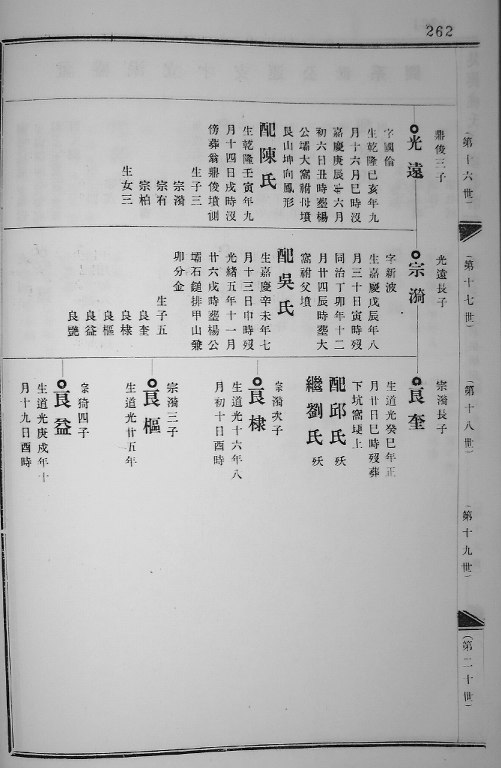 262
（第十六世）
（第十七世）
（第十八世）
（第十九世）
（第二十世）
鼎俊三子
光遠
字國倫
生乾隆己亥年九
月十六月巳時沒
嘉慶庚辰年六月
初六日丑時塟楊
公壩大窩祔母墳
艮山坤向鳳形
配陳氏
生乾隆壬寅年九
月十四日戌時沒
傍葬翁鼎俊墳側
生子三
宗漪
宗有
宗柏
生女三
光遠長子
宗漪
字新波
生嘉慶戊辰年八
月三十日寅時歿
同治丁卯年十二
月廿四辰時塟大
窩祔父墳
配吳氏
生嘉慶辛未年七
月十三日申時歿
光緒五年十一月
廿六戌時塟楊公
壩石鎚排甲山兼
卯分金
生子五
良奎
良棣
良樞
良益
良艷
宗漪長子
良奎
生道光癸巳年正
月廿日巳時歿葬
下坑窩埂上
配邱氏 殀
繼劉氏 殀
宗漪次子
良棣
生道光十六年八
月初十日酉時
宗漪三子
良樞
生道光廿五年
宗猗四子
良益
生道光庚戌年十
月十九日酉時